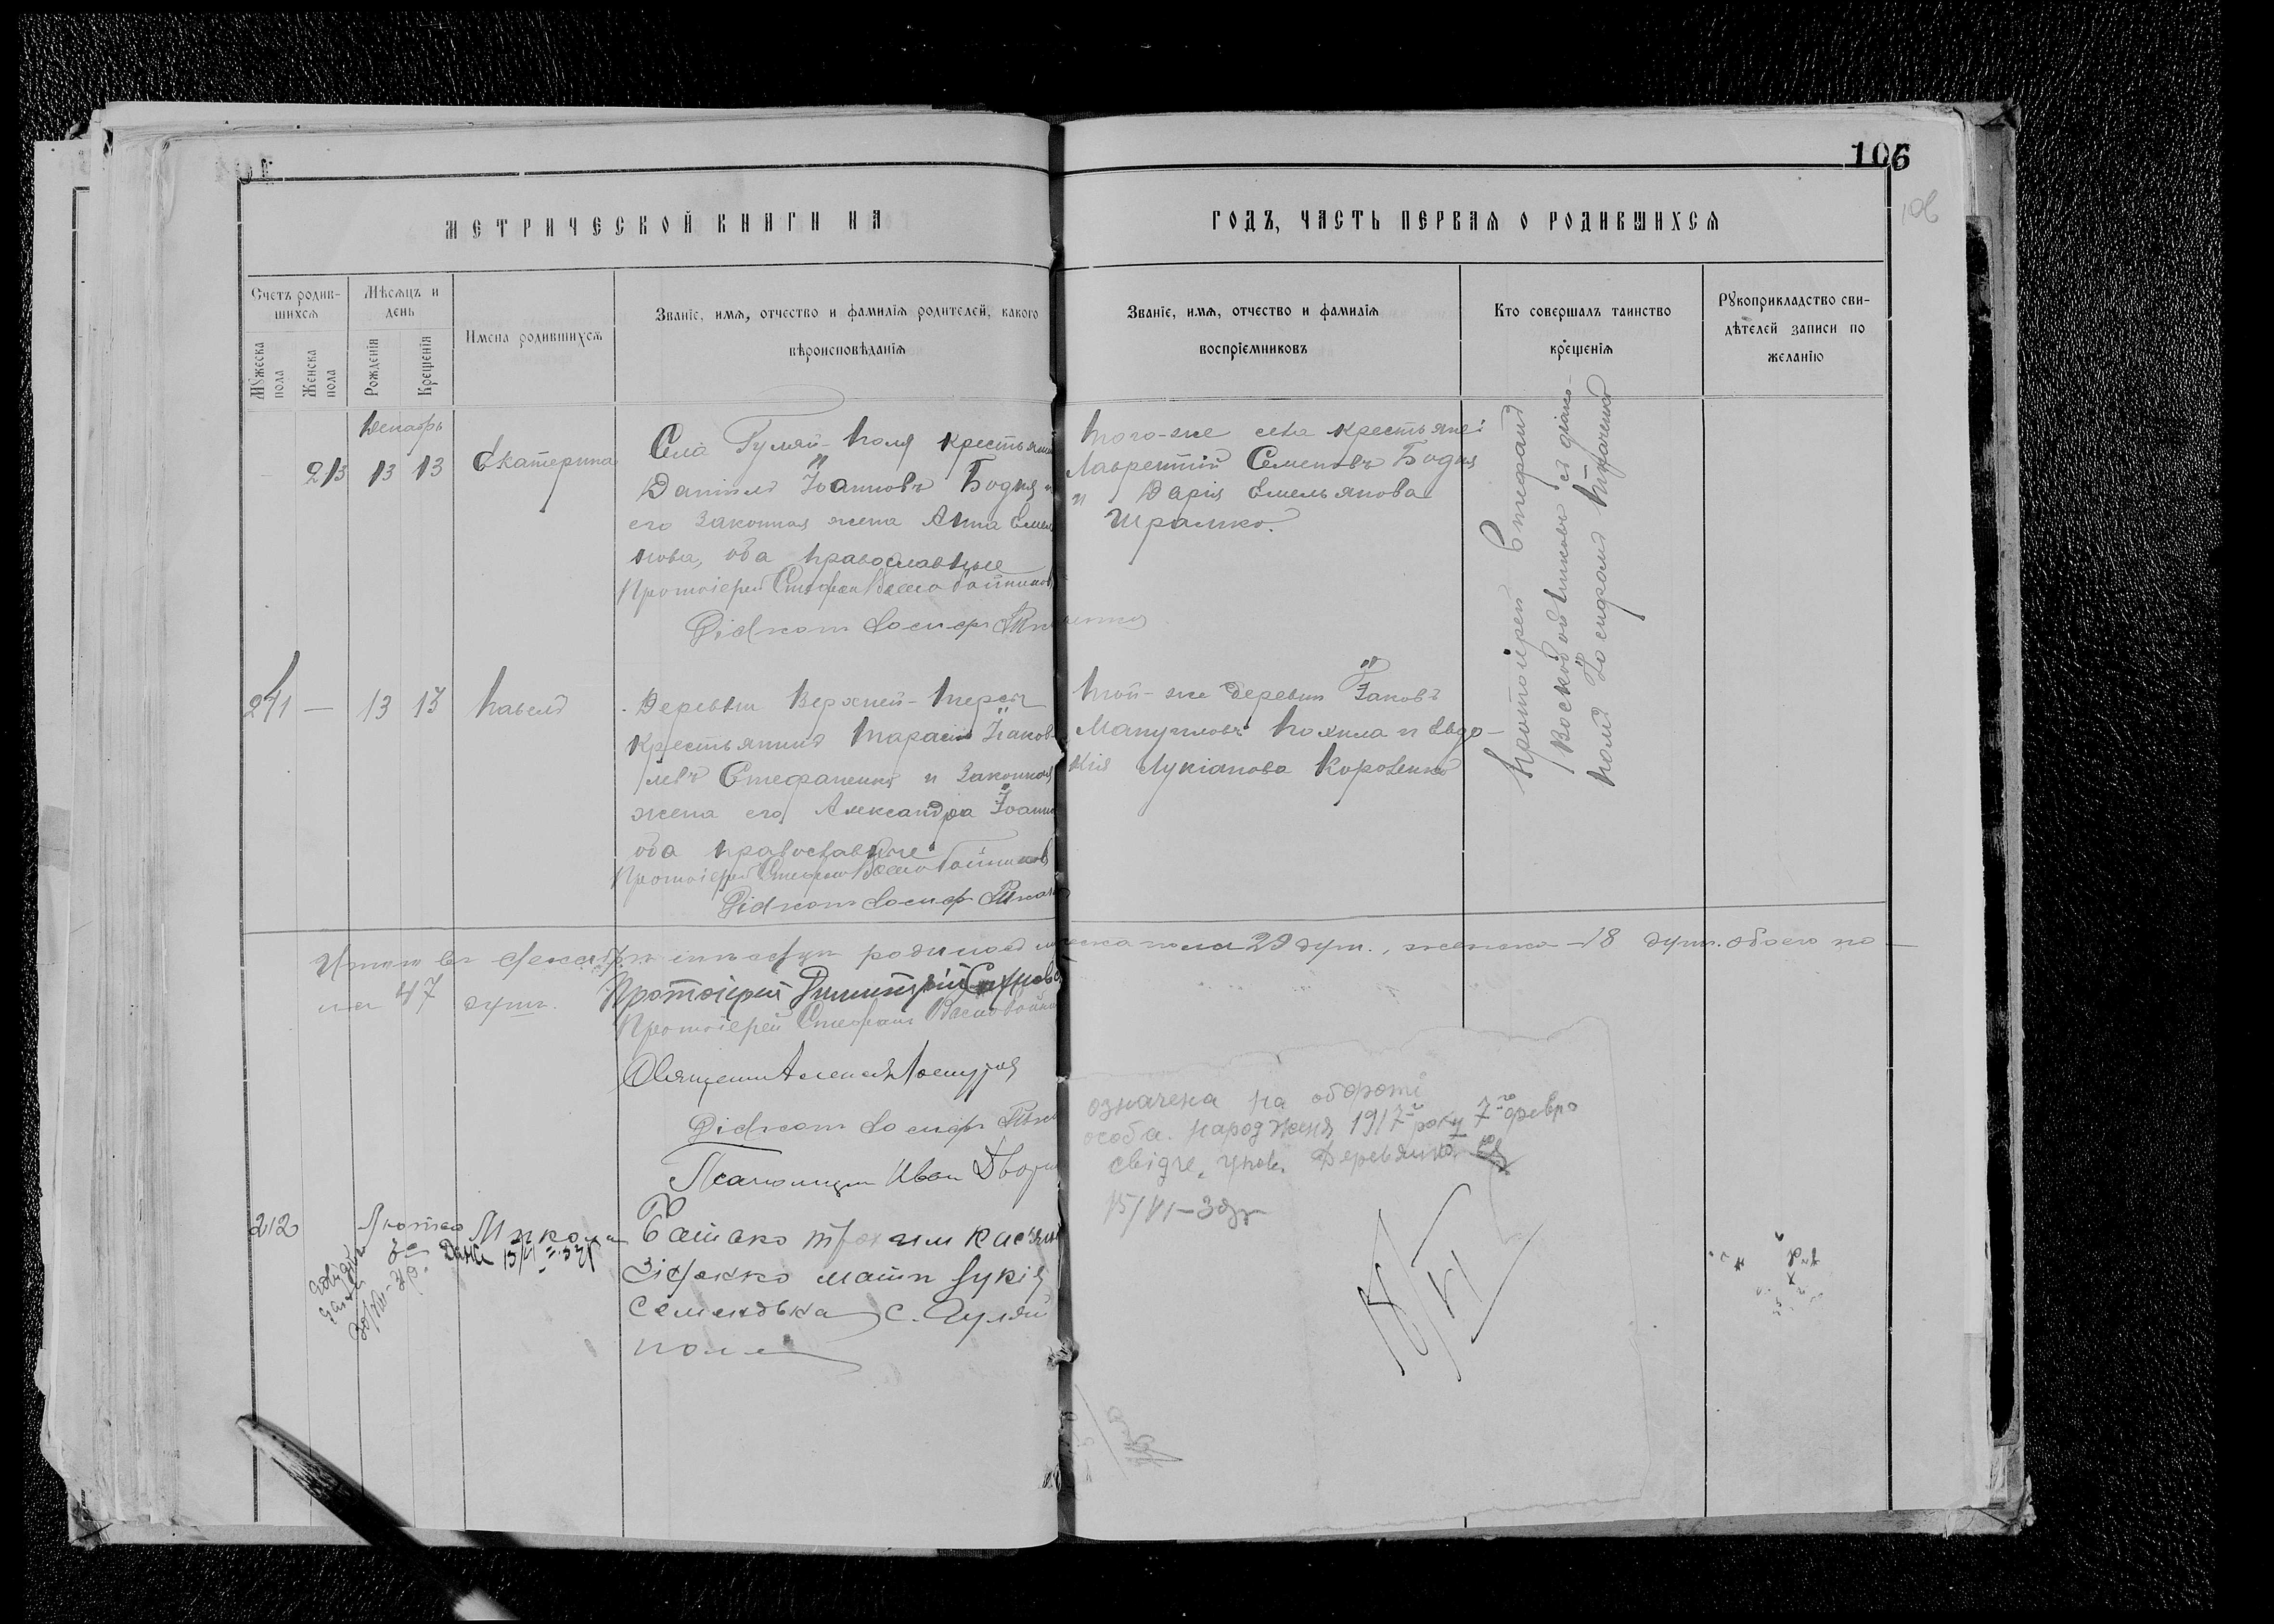 106
106
МЕТРИЧЕСКОЙ КНИГИ НА
ГОДЪ, ЧАСТЬ ПЕРВАЯ О РОДИВШИХСЯ
Счетъ родив-
шихся
Мужеска
пола
Женска
пола
Мѣсяцъ и
день
Рожденія
Крещенія
Имена родившихся
Званіе, имя, отчество и фамилія родителей, какого
вѣроисповѣданія
Званіе, имя, отчество и фамилія
воспріемниковъ
Кто совершалъ таинство
крещенія
Рукоприкладство сви-
дѣтелей записи по
желанію
Декабрь
213 13 13 Екатерина
Села Гуляй-Поля крестьянин
Даніилъ Іоанновъ Бодня и
его законная жена Анна Емель
янова, оба православные
Протоіерей Стефан Воскобойников
Діякон Іосиф
Того-же села крестьяне:
Лаврентій Семеновъ Бодня
и Дарія Емельянова
Шрамко.
Протоіерей Стефанъ
Воскобойниковъ съ діако-
номъ Іосифомъ Ткаченко
271 — 13 13 Павелъ
Деревни Верхней-Терсы
крестьянинъ Тарасій Іаков-
левъ Стефаненко и законная
жена его Александра Іоанно
оба православные
Протоіерей Стефан Воскобойников
Діякон Іосиф
Той-же деревни Іаковъ
Мануиловъ Похила и Евдо-
кія Лукіанова Короленко
Итого въ декабрѣ мѣсяцѣ родилось мужеска пола 29 душ., женска — 18 душ. обоего по-
ла 47 душ.
Протоіерей Димитрій
Протоіерей Стефан Воскобойник
Діякон Іосиф
Псаломщик Иван
212
Лютаго
Микола
Батько Трохим Касян
Зіджко мати Лукія
Семеновна с. Гуляй
поле
означена на обороті
особа народженя 1917 року 7го февр
свідче, упов. Деревянко
15/VI-32р